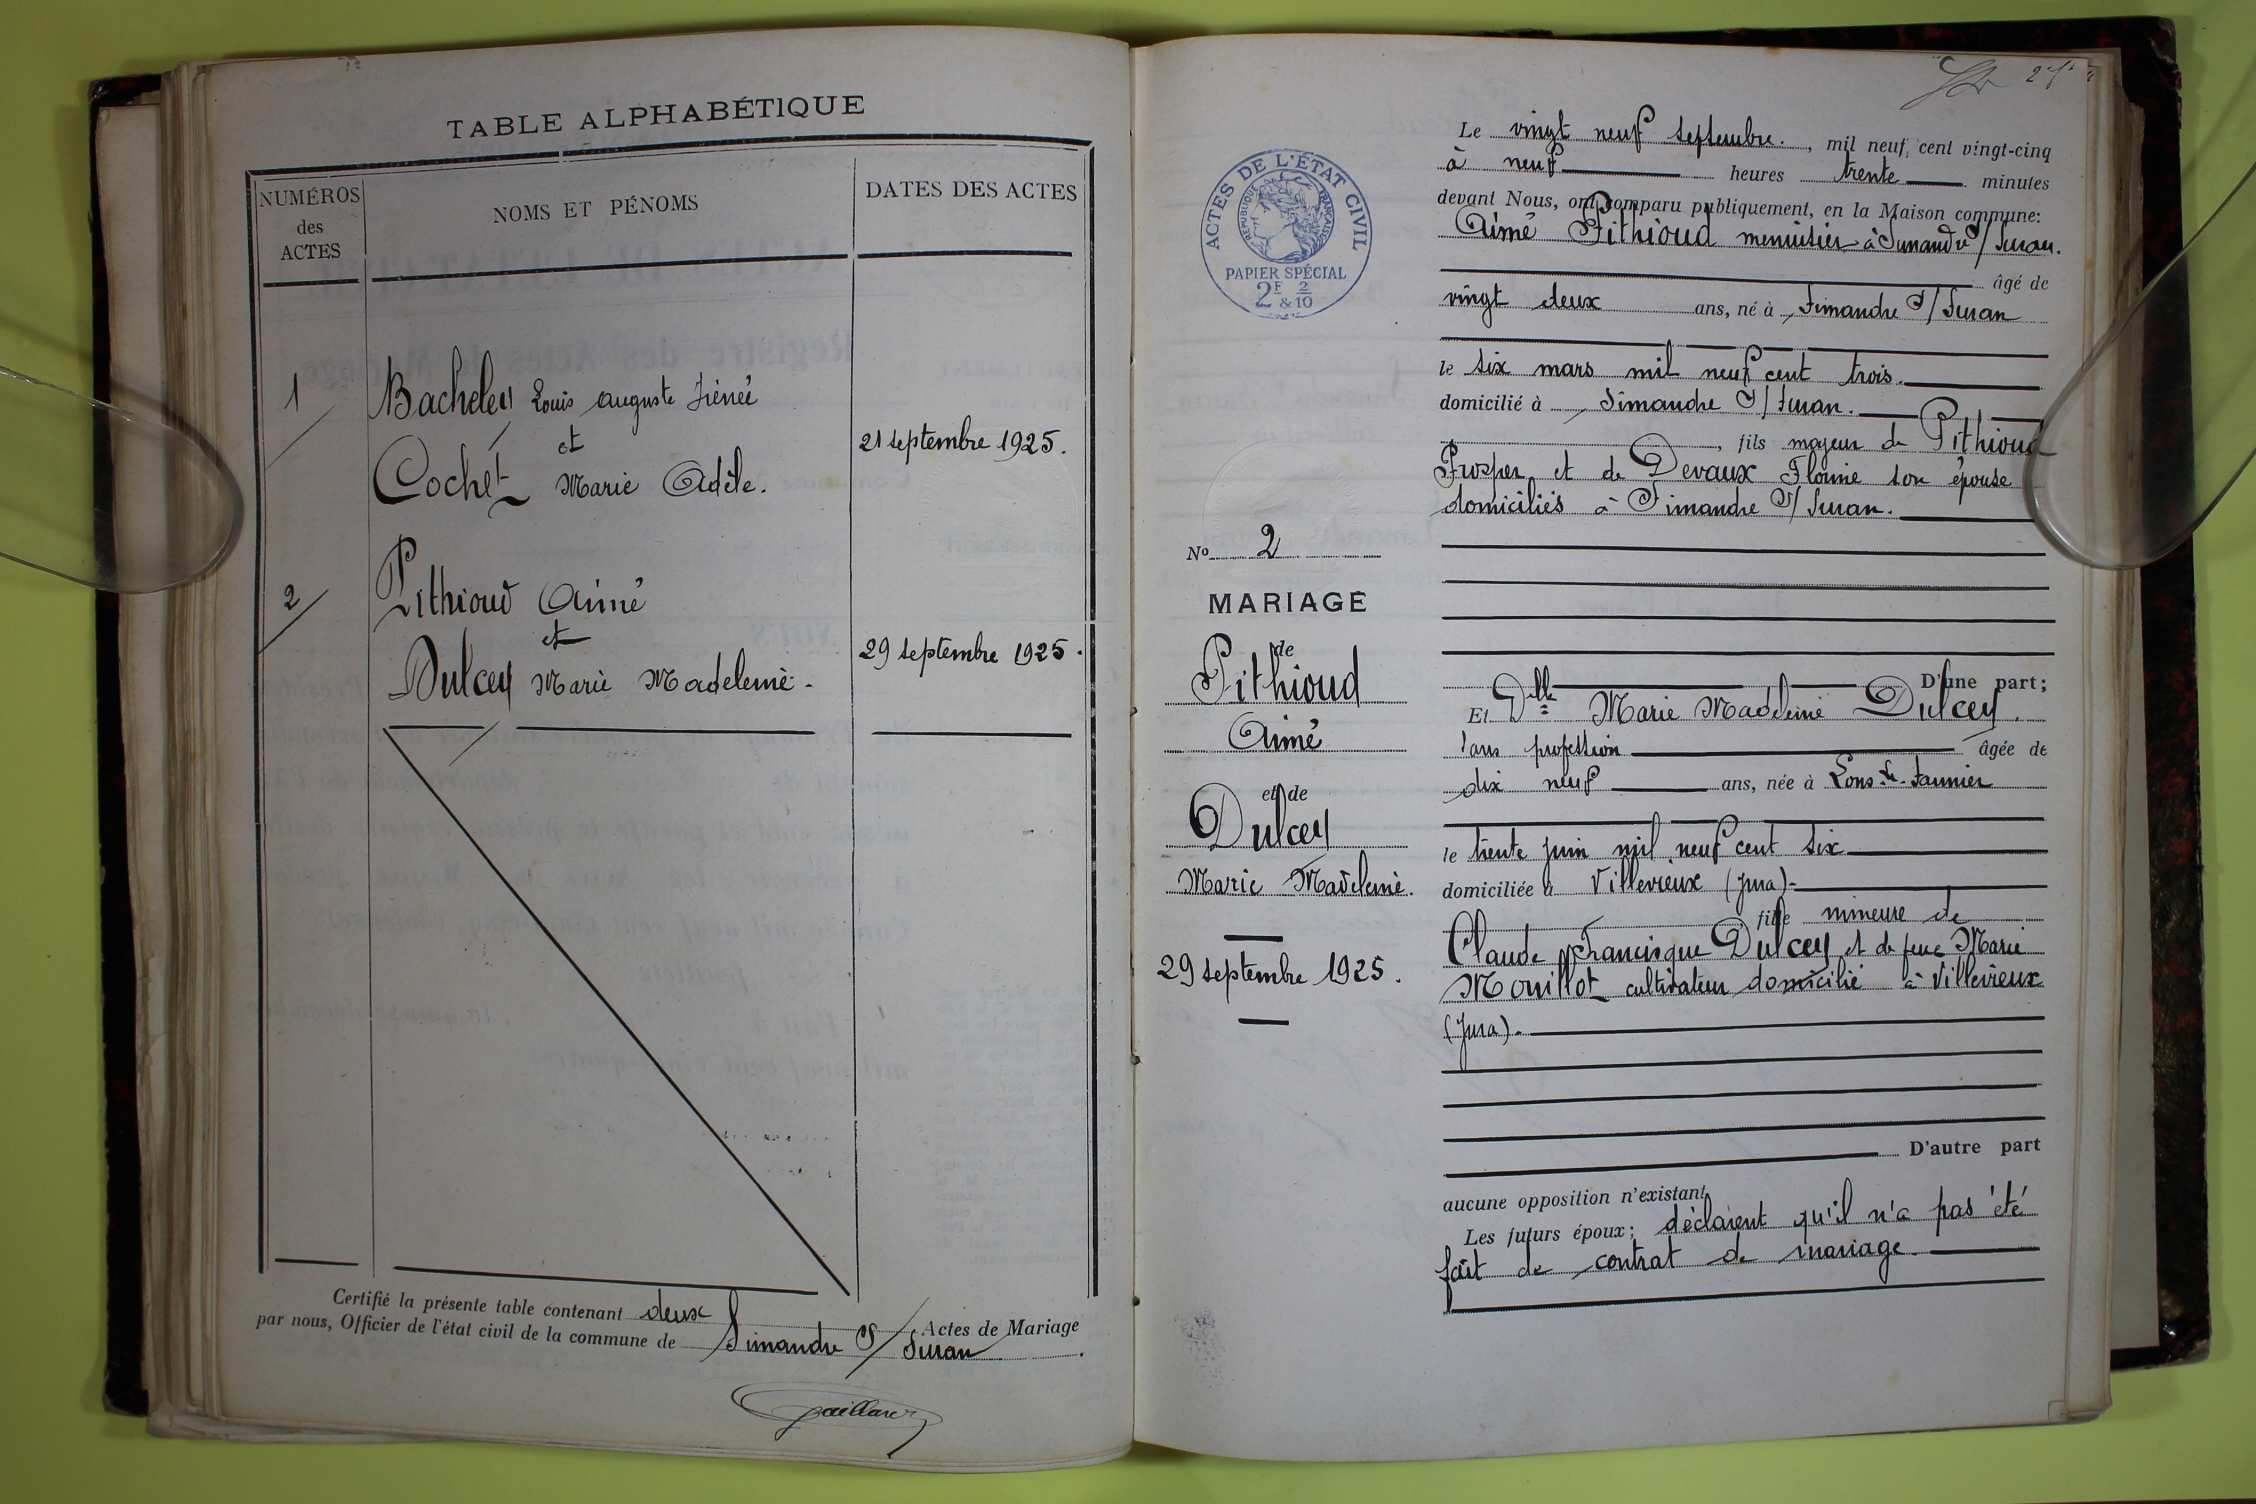 TABLE ALPHABÉTIQUE
NUMÉROS
des
ACTES
NOMS ET PÉNOMS
DATES DES ACTES
1
Bacheley Louis Auguste Irénée
et
Cochet Marie Adèle.
21 septembre 1925.
2
Pithioud Aimé
et
Dulcey Marie Madeleine.
29 septembre 1925.
Certifié la présente table contenant deux Actes de Mariage
par nous, Officier de l'état civil de la commune de Simandre S/ Suran.
Gaillard
ACTES DE L'ÉTAT CIVIL
RÉPUBLIQUE FRANÇAISE
PAPIER SPÉCIAL
2F & 2/10
No 2
MARIAGE
de
Pithioud
Aimé
et de
Dulcey
Marie Madeleine.
29 septembre 1925.
Le vingt neuf septembre, mil neuf cent vingt-cinq
à neuf heures trente minutes
devant Nous, ont comparu publiquement, en la Maison commune:
Aimé Pithioud menuisier à Simandre S/ Suran.
âgé de
vingt deux ans, né à Simandre S/ Suran
le six mars mil neuf cent trois.
domicilié à Simandre S/ Suran.
, fils majeur de Pithioud
Prosper et de Devaux Florine son épouse
domiciliés à Simandre S/ Suran.
D'une part;
Et Dlle Marie Madeleine Dulcey.
sans profession âgée de
dix neuf ans, née à Lons-le-Saunier
le trente juin mil neuf cent six
domiciliée à Villevieux (Jura)
fille mineure de
Claude Francisque Dulcey et de feue Marie
Mouillot cultivateur domicilié à Villevieux
(Jura).
D'autre part
aucune opposition n'existant
Les futurs époux; déclarent qu'il n'a pas été
fait de contrat de mariage.